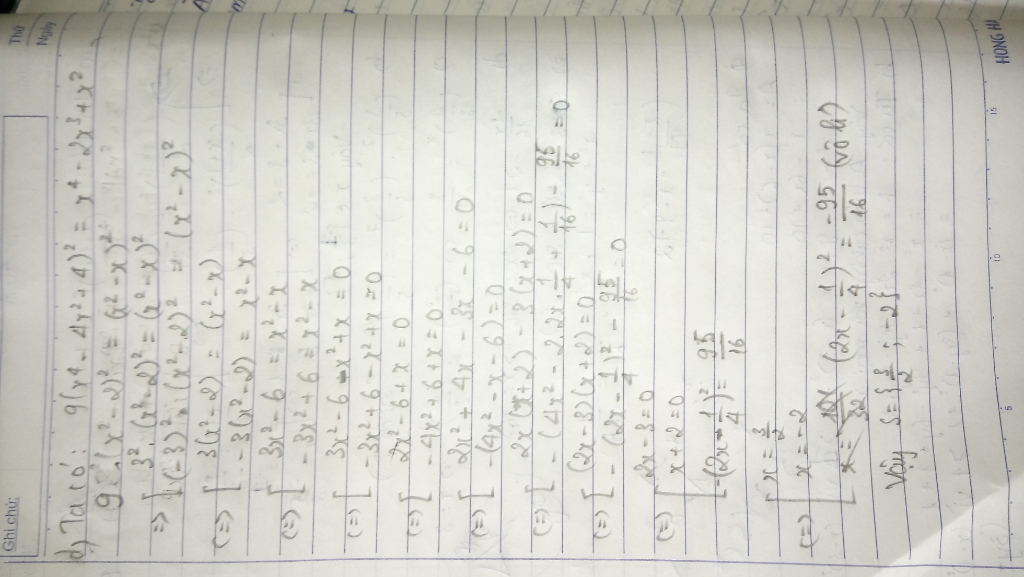 Thứ
Ngày
Ghi chú:
d) Ta có: 9(x⁴ - 4x² + 4)² = x⁴ - 2x³ + x²
9.(x² - 2)² = (x² - x)²
=> [ 3².(x² - 2)² = (x² - x)²
(-3)².(x² - 2)² = (x² - x)²
(=) [ 3(x² - 2) = (x² - x)
-3(x² - 2) = x² - x
(=) [ 3x² - 6 = x² - x
-3x² + 6 = x² - x
(=) [ 3x² - 6 - x² + x = 0
-3x² + 6 - x² + x = 0
(=) [ 2x² - 6 + x = 0
-4x² + 6 + x = 0
(=) [ 2x² + 4x - 3x - 6 = 0
-(4x² - x - 6) = 0
(=) [ 2x(x + 2) - 3(x + 2) = 0
-(4x² - 2.2x.1/4 + 1/16) - 95/16 = 0
(=) [ (2x - 3)(x + 2) = 0
-(2x - 1/4)² - 95/16 = 0
(=) [ 2x - 3 = 0
x + 2 = 0
-(2x - 1/4)² = 95/16
(=) [ x = 3/2
x = -2
(2x - 1/4)² = -95/16 (vô lí)
Vậy S = {3/2 ; -2}
5
10
15
HONG HA